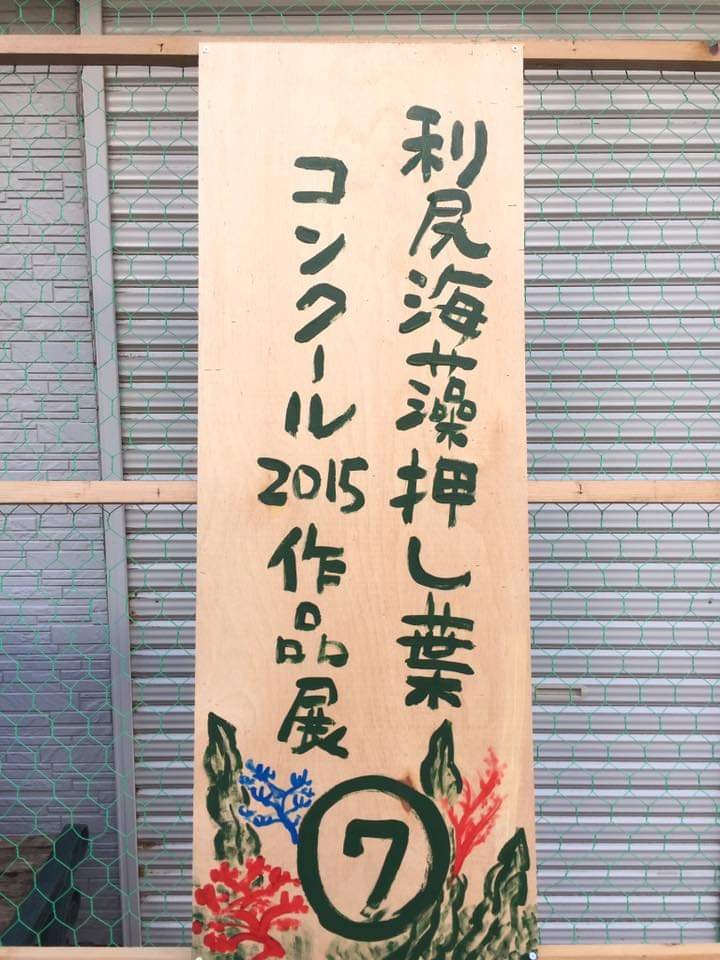 利尻海藻押し葉
コンクール2015作品展
⑦